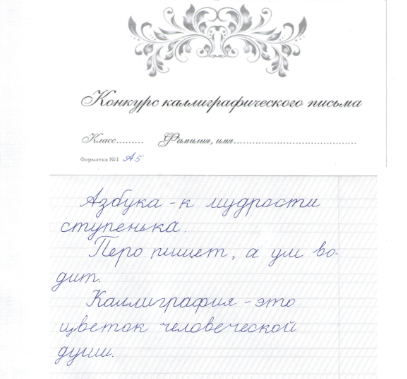 Конкурс каллиграфического письма
Класс......... Фамилия, имя.......................................
Форматка №1 А5
Азбука - к мудрости
ступенька.
Перо пишет, а ум во-
дит.
Каллиграфия - это
цветок человеческой
души.